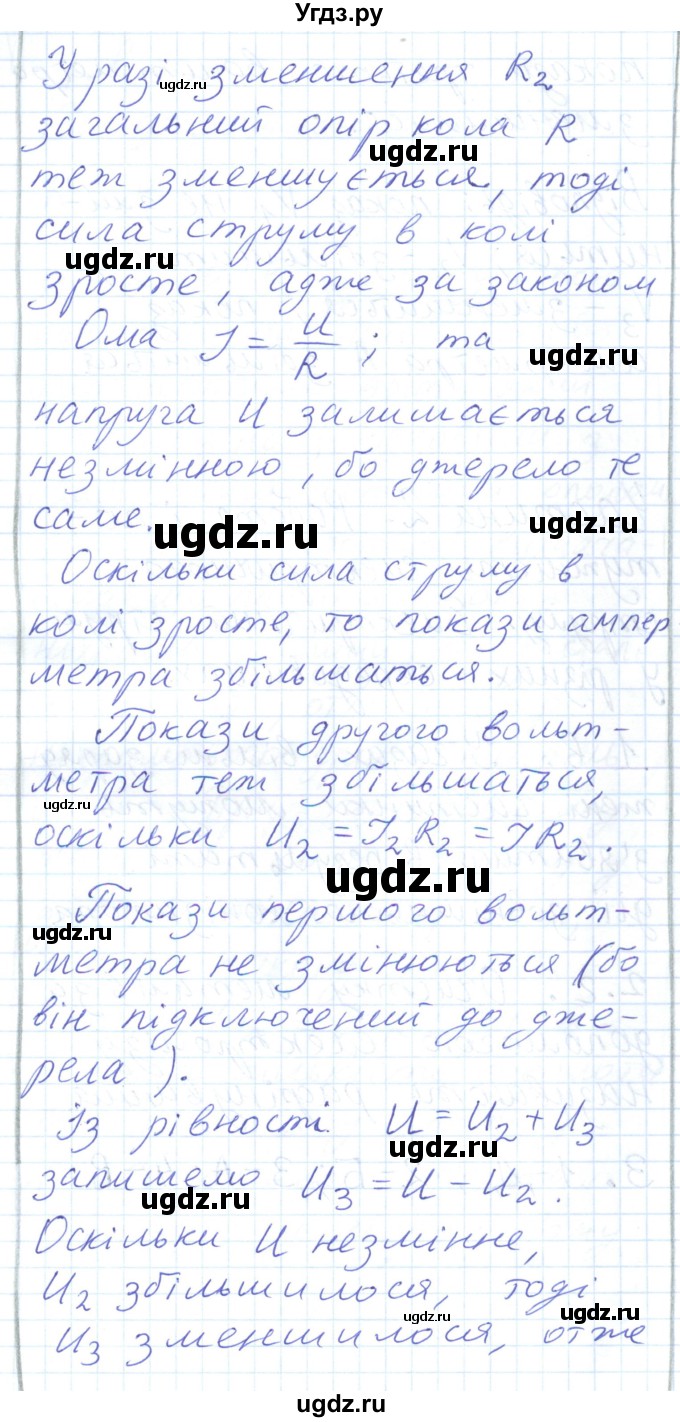 Угдз.ру
У разі зменшення R₂
загальний опір кола R
теж зменшується, тоді
сила струму в колі
зросте, адже за законом
Ома I = U/R ; та
напруга U залишається
незмінною, бо джерело те
саме.
Оскільки сила струму в
колі зросте, то покази ампер
метра збільшаться.
Покази другого вольт-
метра теж збільшаться,
оскільки U₂ = I₂R₂ = IR₂.
Покази першого вольт-
метра не змінюються (бо
він підключений до дже-
рела).
Із рівності U = U₂ + U₃
запишемо U₃ = U - U₂.
Оскільки U незмінне,
U₂ збільшилося, тоді
U₃ зменшилося, отже
ugdz.ru
ugdz.ru
ugdz.ru
ugdz.ru
ugdz.ru
ugdz.ru
ugdz.ru
ugdz.ru
ugdz.ru
ugdz.ru
ugdz.ru
ugdz.ru
ugdz.ru